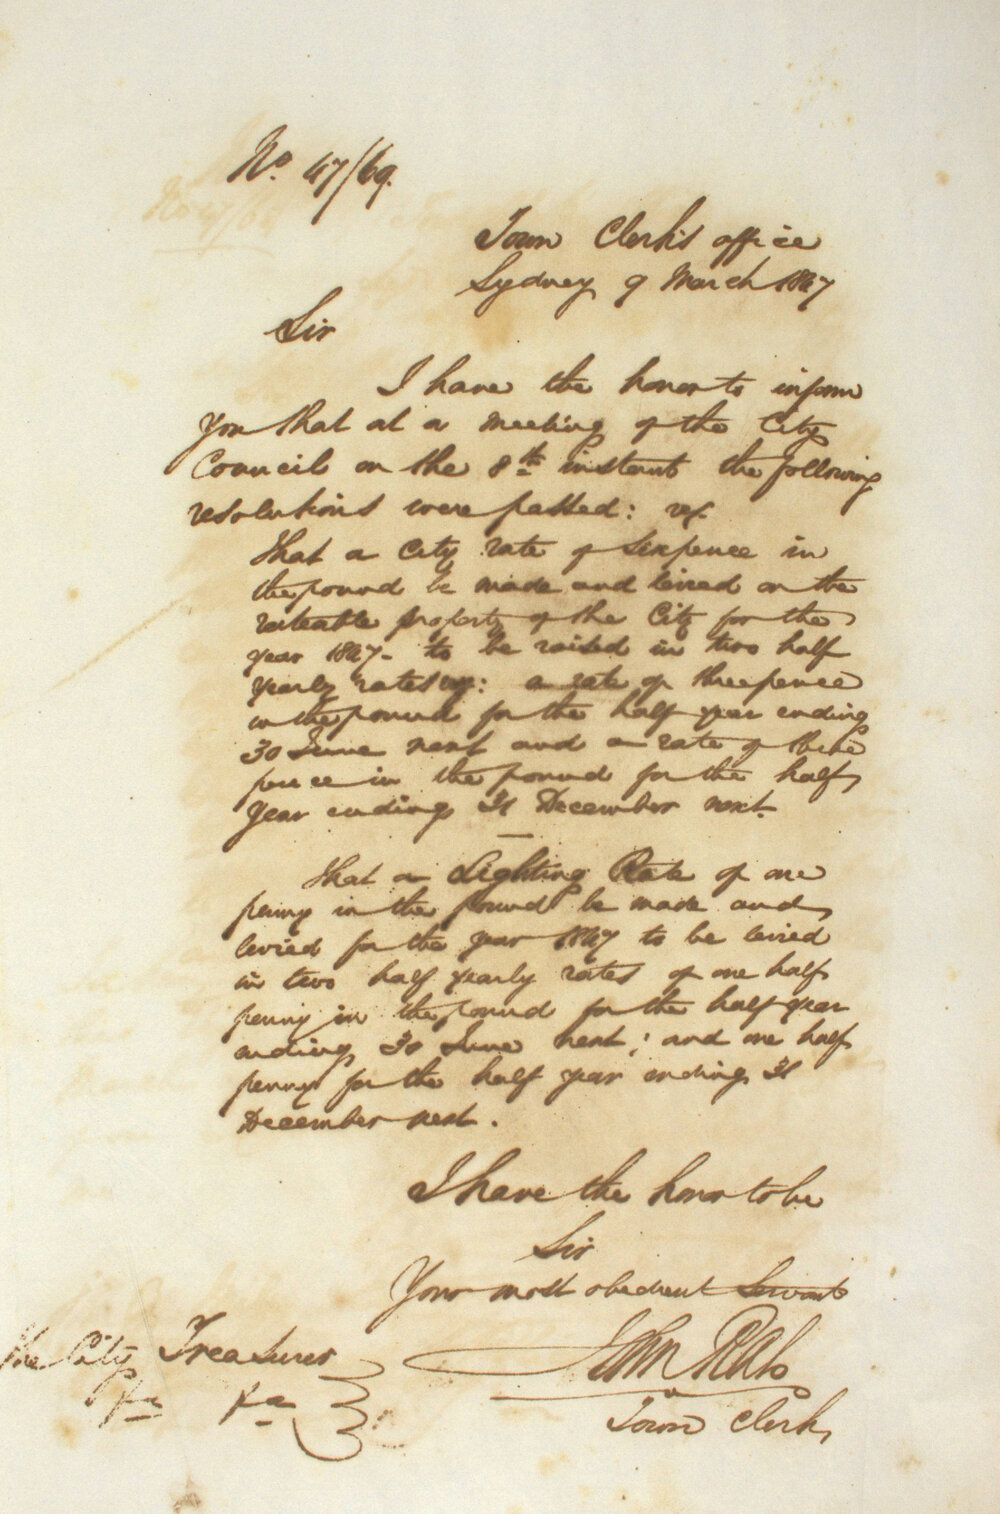 No. 47/69.
Town Clerk's office
Sydney 9 March 1847
Sir
I have the honor to inform
you that at a meeting of the City
Council on the 8th instant the following
resolutions were passed: viz.
That a City rate of sixpence in
the pound be made and levied on the
rateable property of the City for the
year 1847 - to be raised in two half
yearly rates viz: a rate of threepence
in the pound for the half year ending
30 June next and a rate of three
pence in the pound for the half
year ending 31 December next.
That a Lighting Rate of one
penny in the pound be made and
levied for the year 1847 to be levied
in two half yearly rates of one half
penny in the pound for the half year
ending 30 June next; and one half
penny for the half year ending 31
December next.
I have the honor to be
Sir
Your most obedient Servant
John Rae
Town Clerk
The City Treasurer
&c &c